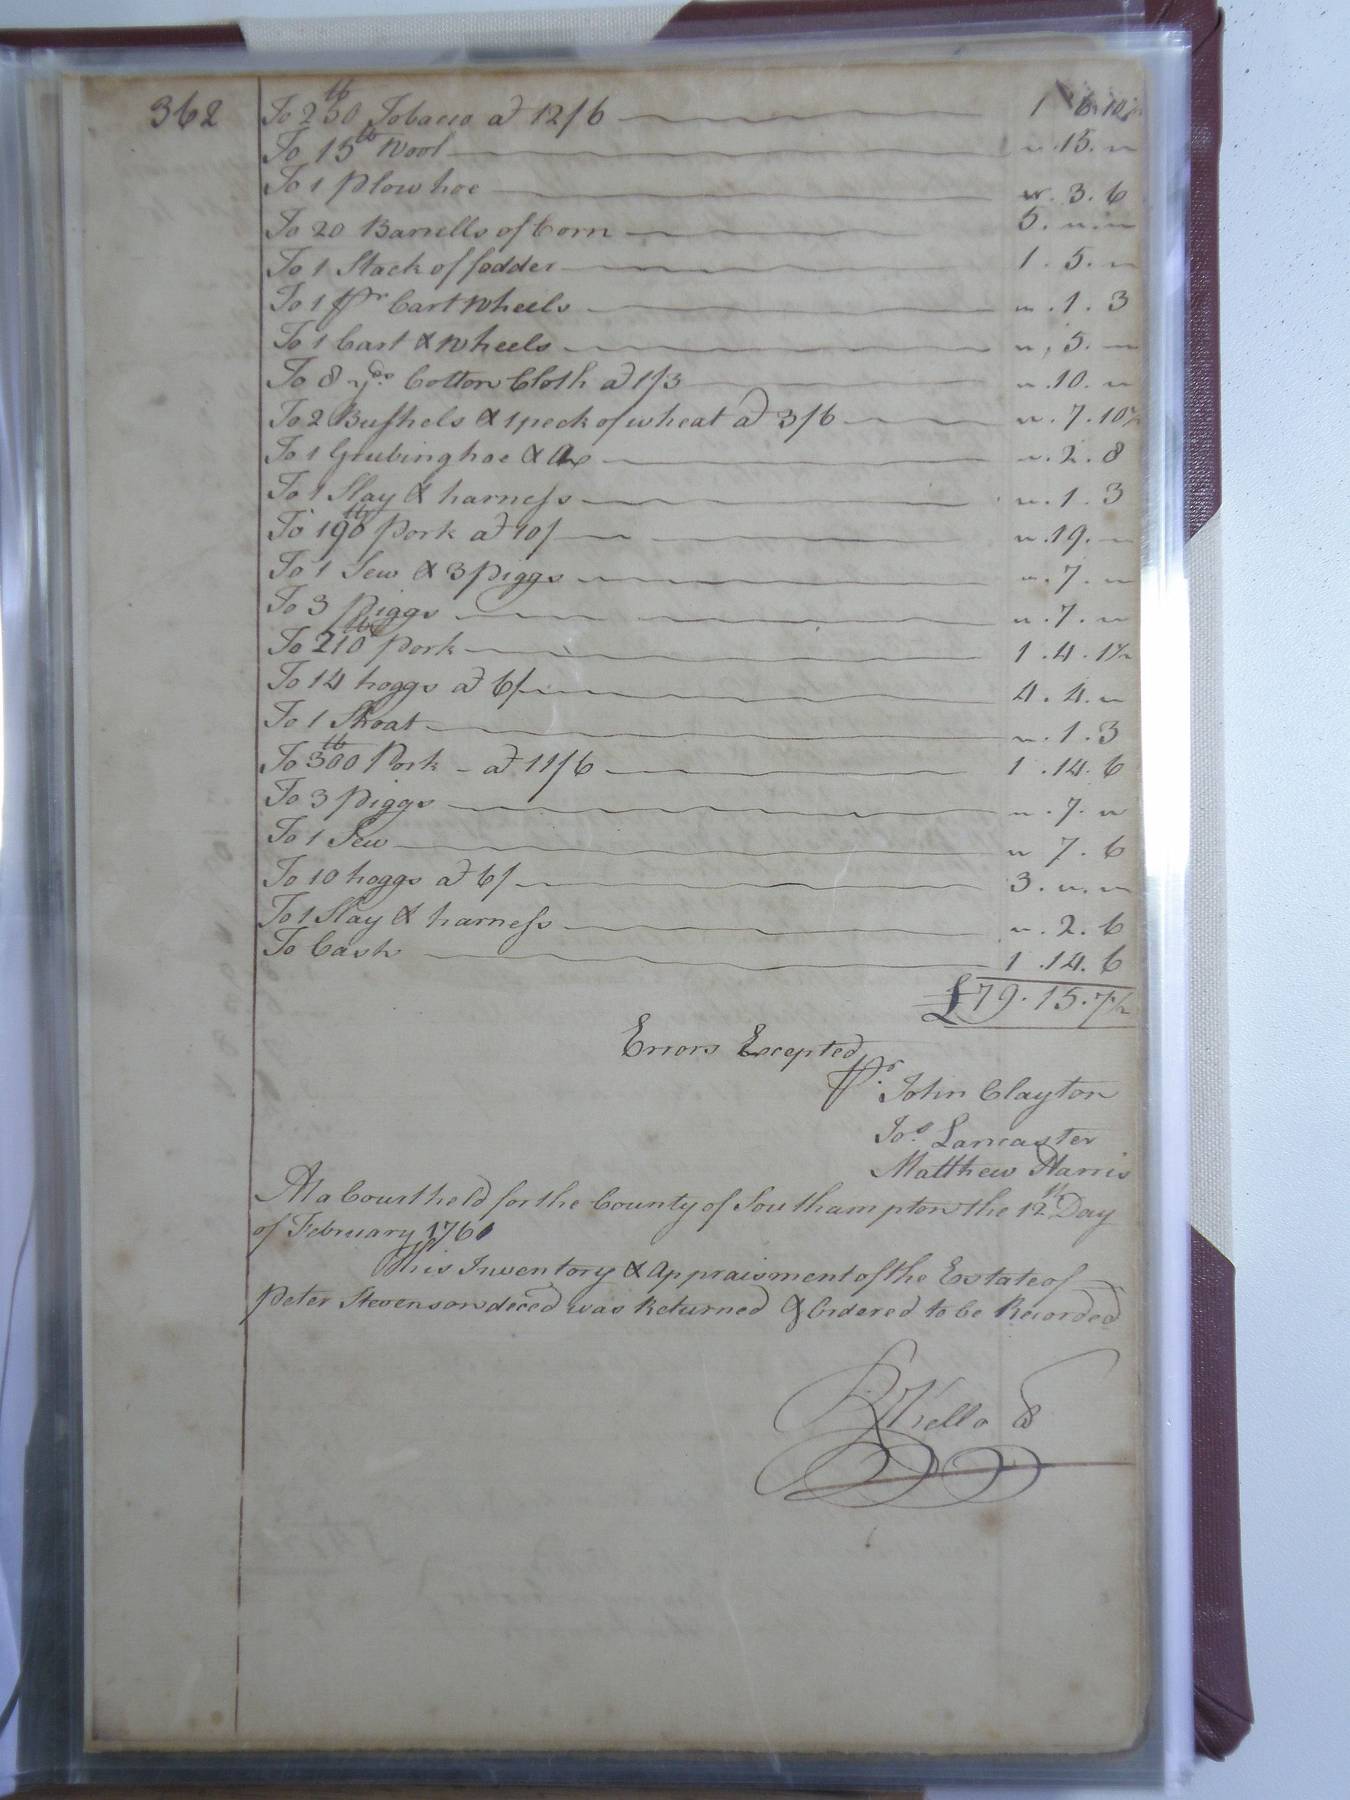 362
To 250 lb Tobacco a 12/6 1 8. 10
To 15 lb Wool " .15. "
To 1 Plow hoe " . 3. 6
To 20 Barrells of Corn 5. ". "
To 1 Stack of fodder 1 . 5. "
To 1 pr Cart Wheels " . 1 . 3
To 1 Cart & Wheels " . 5. "
To 8 yds. Cotton Cloth a 1/3 " .10. "
To 2 Bushels & 1 peck of wheat a 3/6 " . 7 .10½
To 1 Grubing hoe & Ax " . 2 . 8
To 1 Slay & harness " . 1 . 3
To 190 lb Pork a 10/ " .19. "
To 1 Sow & 3 piggs " . 7 . "
To 3 piggs " . 7 . "
To 210 lb Pork 1 . 4 . 1½
To 14 hoggs a 6/ 4 . 4 . "
To 1 Shoat " . 1 . 3
To 300 lb Pork - a 11/6 1 .14. 6
To 3 piggs " . 7. "
To 1 Sow " 7 . 6
To 10 hoggs a 6/ 3 . ". "
To 1 Slay & harness " . 2. 6
To Cash 1 .14. 6
£79. 15. 7½
Errors Excepted
pr. John Clayton
Jos. Lancaster
Matthew Harris
At a Court held for the County of Southampton the 12th Day
of February 1760
This Inventory & Appraisment of the Estate of
Peter Stevenson deced was Returned & Ordered to be Recorded
R Kello